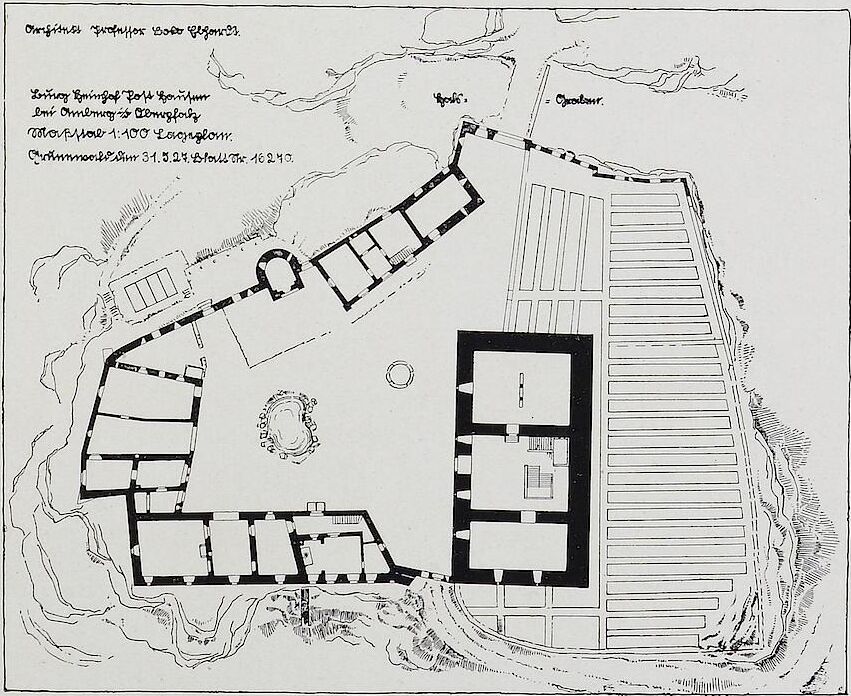 Architekt Professor Bodo Ebhardt.
Burg Heimhof Post Hausen
bei Amberg i/d Oberpfalz
Maßstab 1:100 Lageplan.
Grünewald den 31.5.27. Blatt Nr. 16270.
Hals- -Graben.